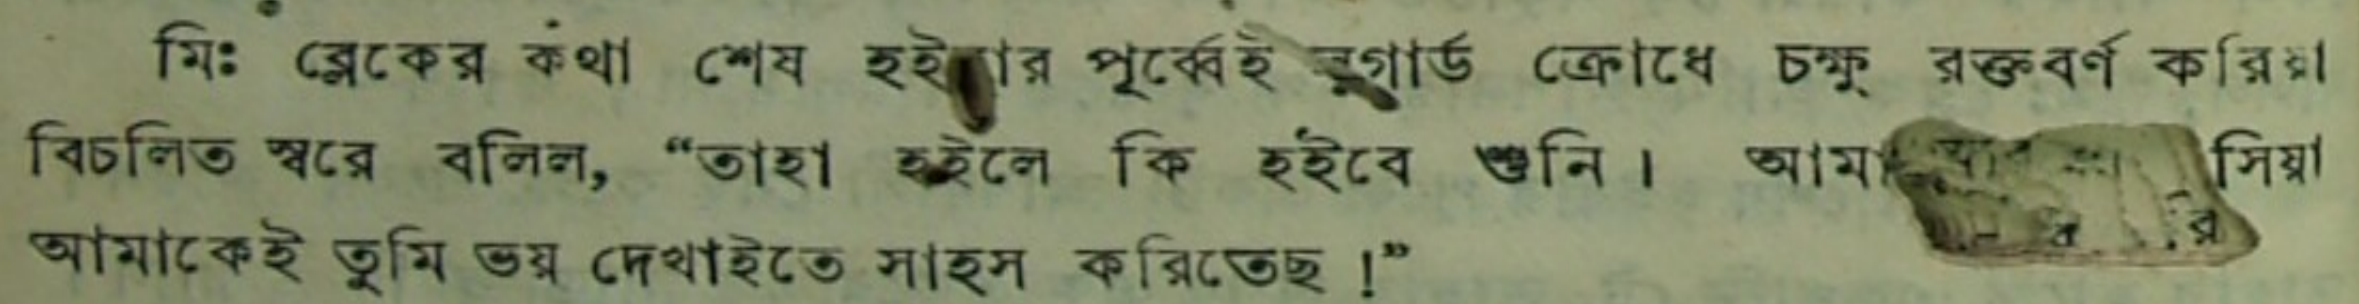 মিঃ ব্লেকের কথা শেষ হইবার পূর্ব্বেই ক্রোধে চক্ষু রক্তবর্ণ করিয়া
বিচলিত স্বরে বলিল, “তাহা হইলে কি হইবে শুনি। সিয়া
আমাকেই তুমি ভয় দেখাইতে সাহস করিতেছ !”